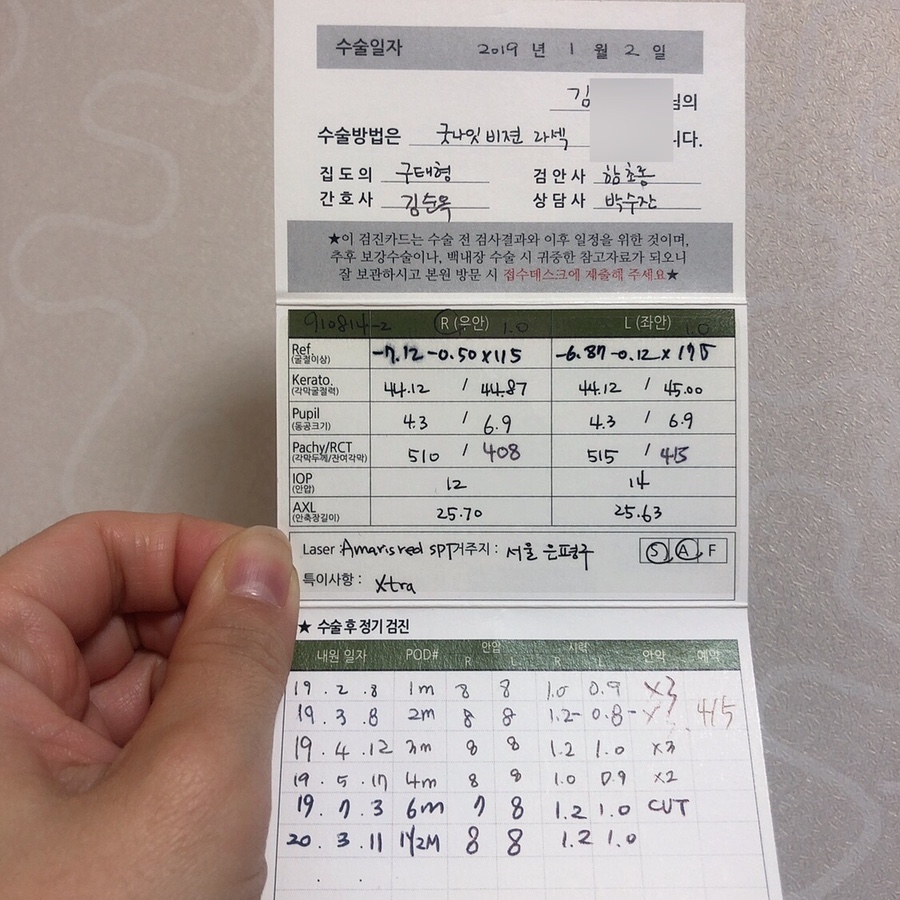 수술일자 2019 년 1 월 2 일
김 님의
수술방법은 굿나잇 비젼 라섹 니다.
집도의 구태형 검안사 함초롱
간호사 김순옥 상담사 박수잔
★이 검진카드는 수술 전 검사결과와 이후 일정을 위한 것이며,
추후 보강수술이나, 백내장 수술 시 귀중한 참고자료가 되오니
잘 보관하시고 본원 방문 시 접수데스크에 제출해 주세요★
910814-2 R (우안) 1.0 L (좌안) 1.0
Ref. (굴절이상) -7.12 -0.50 x 115 -6.87 -0.12 x 175
Kerato. (각막굴절력) 44.12 / 44.87 44.12 / 45.00
Pupil (동공크기) 4.3 / 6.9 4.3 / 6.9
Pachy/RCT (각막두께/잔여각막) 510 / 408 515 / 415
IOP (안압) 12 14
AXL (안축장길이) 25.70 25.63
Laser : Amaris red SPT 거주지 : 서울 은평구 S A F
특이사항 : Xtra
★ 수술 후 정기 검진
내원 일자 POD# 안압 R L 시력 R L 안약 예약
19 . 2 . 8 1m 8 8 1.0 0.9 x3
19 . 3 . 8 2m 8 8 1.2- 0.8- 4/5
19 . 4 . 12 3m 8 8 1.2 1.0 x3
19 . 5 . 17 4m 8 8 1.0 0.9 x2
19 . 7 . 3 6m 7 8 1.2 1.0 CUT
20 . 3 . 11 1Y2M 8 8 1.2 1.0